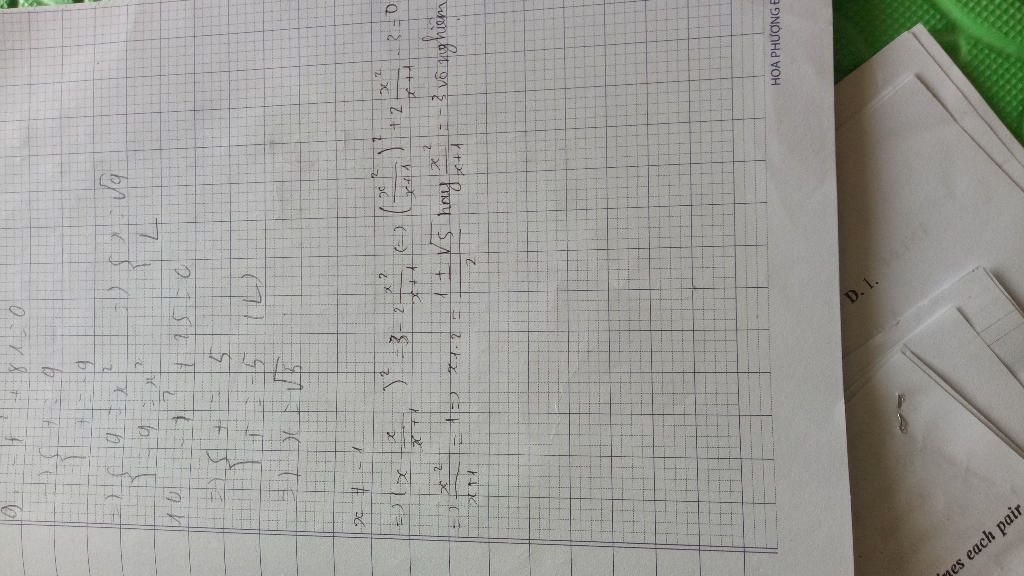 9. t² + 81 = 0
=> { t = 9
t = -9
=> { 9 = x²
-9 = x² => { x = √9
L
10 - t² + 25 = 0
=> { t = 5
t = -5 (L)
=> x = √5
x ≠ -1
=> (x - x/x+1)² = 3 - 2 x²/x+1 (=) (x²/x+1)² + 2 x²/x+1 - 3 = 0
=> x²/x+1 = 1 => x1,2 = 1 ± √5/2 hay x²/x+1 = -3 vô nghiệm
HOA PHƯỢNG
D. 1.
ines each pair